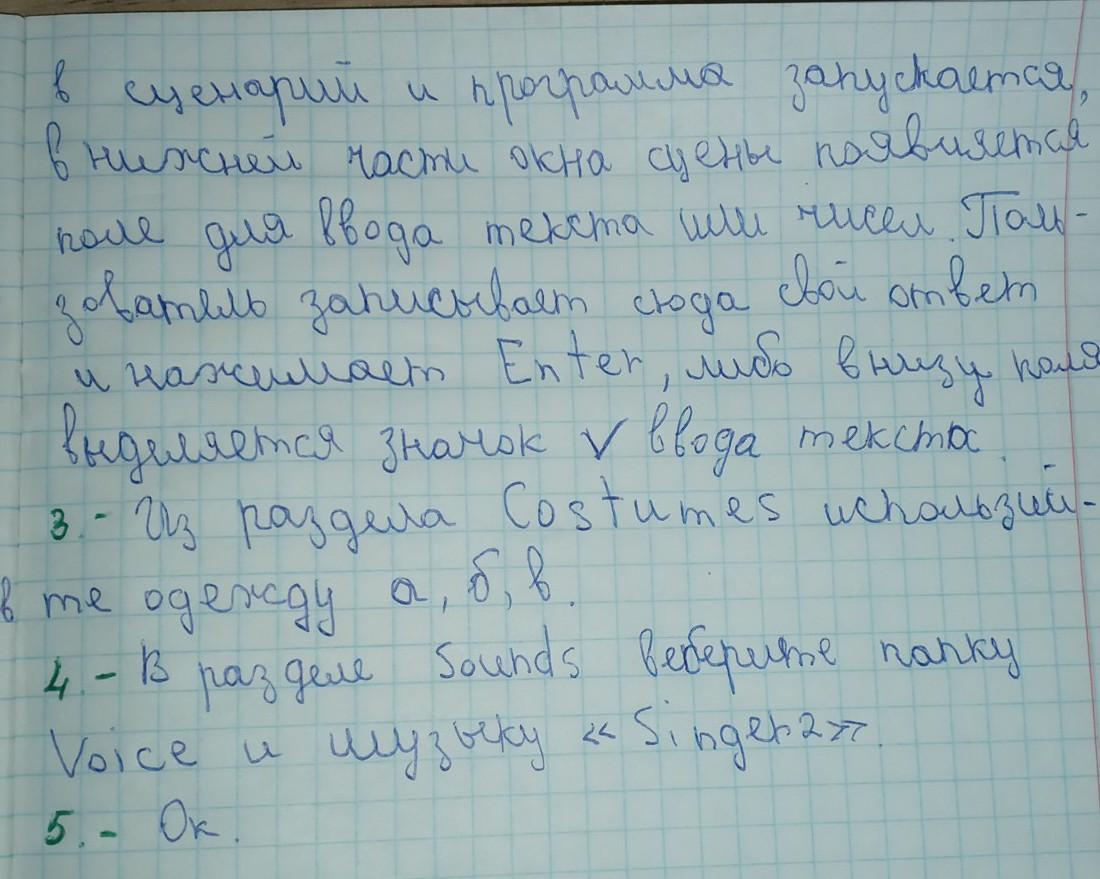 в сценарий и программа запускается,
в нижней части окна сцены появляется
поле для ввода текста или чисел. Поль-
зователь записывает сюда свой ответ
и нажимает Enter, либо внизу поля
выделяется значок V ввода текста.
3.- Из раздела Costumes используй-
в те одежду а, б, в.
4.- В разделе Sounds веберите папку
Voice и музыку «Singer2».
5.- Ок.